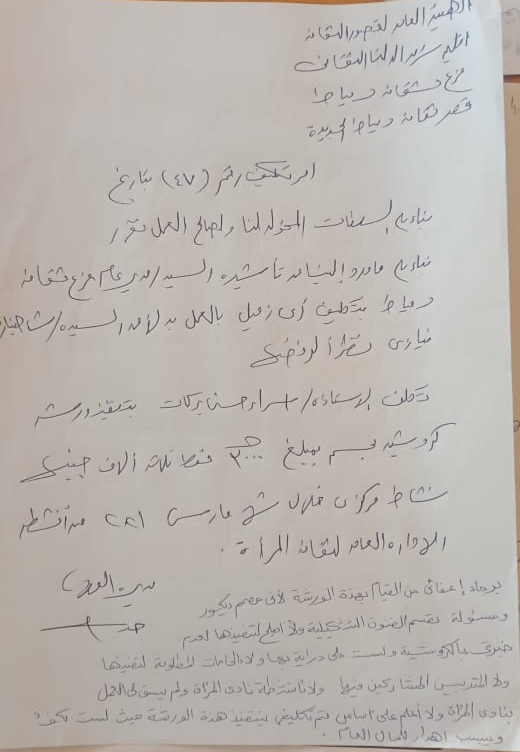 الهيئة العامة لقصور الثقافة
إقليم شرق الدلتا الثقافى
فرع ثقافة دمياط
قصر ثقافة دمياط الجديدة
أمر تكليف رقم (٤٧) بتاريخ
بناء على السلطات المخولة لنا ولصالح العمل تقرر
بناء على ما ورد إلينا من تأشيرة السيد/ مدير عام فرع ثقافة
دمياط بتكليف أى زميل بالعمل بدلا من السيدة/
نظرا لوفض
تكلف الاستاذة/ اسراء حسن بركات بتنفيذ ورشة
كروشيه بمبلغ ٣٠٠٠ فقط ثلاثة آلاف جنيها
نشاط مركزى خلال شهر مارس ٢٠٢١ من أنشطة
الإدارة العامة لثقافة المرأة .
مدير
برجاء إعفائى من القيام بهذة الورشة لأنى مصمم ديكور
ومسئولة بقسم الفنون التشكيلية ولا أصلح لتنفيذها لعدم
خبرتى بالكروشية ولست على دراية بها ولا بالخامات المطلوبة لتنفيذها
ولا المتدربين المشاركين فيها ولا بأنشطة نادى المرأة ولم يسبق لى العمل
بنادى المرأة ولا أعلم على أى أساس تم تكليفى بتنفيذ هذة الورشة حيث لست كفء
ويسبب اهدار للمال العام .